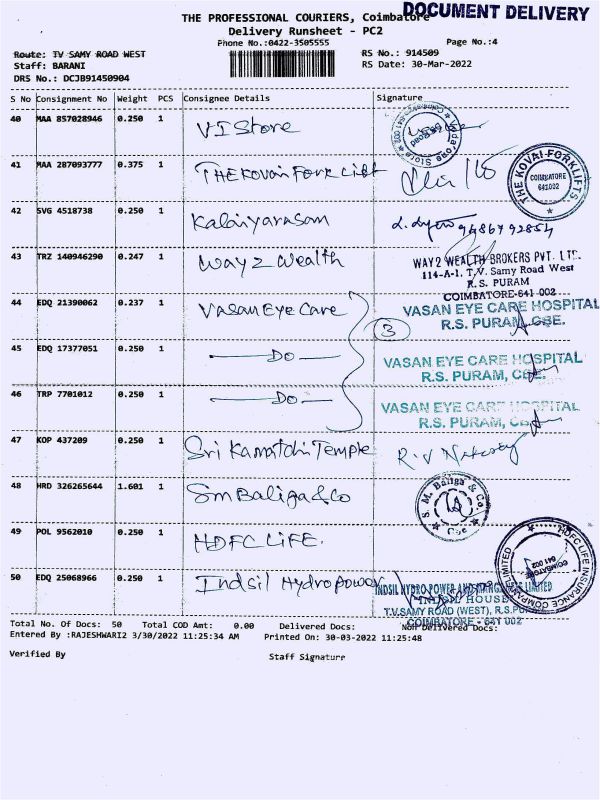 DOCUMENT DELIVERY
THE PROFESSIONAL COURIERS, Coimbatore
Delivery Runsheet - PC2
Phone No.:0422-3505555 Page No.:4
Route: TV SAMY ROAD WEST RS No.: 914509
Staff: BARANI RS Date: 30-Mar-2022
DRS No.: DCJB91450904
S No Consignment No Weight PCS Consignee Details Signature
40 MAA 857028946 0.250 1 VI Store
41 MAA 287093777 0.375 1 THE Kovai Fork Lift
THE KOVAI-FORKLIFTS
COIMBATORE
641002
42 SVG 4518738 0.250 1 Kalaiyarasan 9486792854
43 TRZ 140946290 0.247 1 Way 2 Wealth
WAY2 WEALTH BROKERS PVT. LTD.
114-A-1, T.V. Samy Road West
R.S. PURAM
COIMBATORE-641 002
44 EDQ 21390062 0.237 1 Vasan Eye Care 3
VASAN EYE CARE HOSPITAL
R.S. PURAM, CBE.
45 EDQ 17377051 0.250 1 DO
VASAN EYE CARE HOSPITAL
R.S. PURAM, CBE.
46 TRP 7701012 0.250 1 DO
VASAN EYE CARE HOSPITAL
R.S. PURAM,
47 KOP 437209 0.250 1 Sri Kamatchi Temple R.V
48 HRD 326265644 1.601 1 Sm Baliga & Co
S. M. Baliga & Co.
Cbe
49 POL 9562010 0.250 1 HDFC LIFE.
HDFC LIFE INSURANCE COMPANY LIMITED
COIMBATORE
641 002
50 EDQ 25068966 0.250 1 Indsil Hydropower
INDSIL HYDRO POWER AND MANGANESE LIMITED
HOUSE
T.V.SAMY ROAD (WEST), R.S.PURAM
COIMBATORE - 641 002
Total No. Of Docs: 50 Total COD Amt: 0.00 Delivered Docs: Non Delivered Docs:
Entered By :RAJESHWARI2 3/30/2022 11:25:34 AM Printed On: 30-03-2022 11:25:48
Verified By Staff Signature